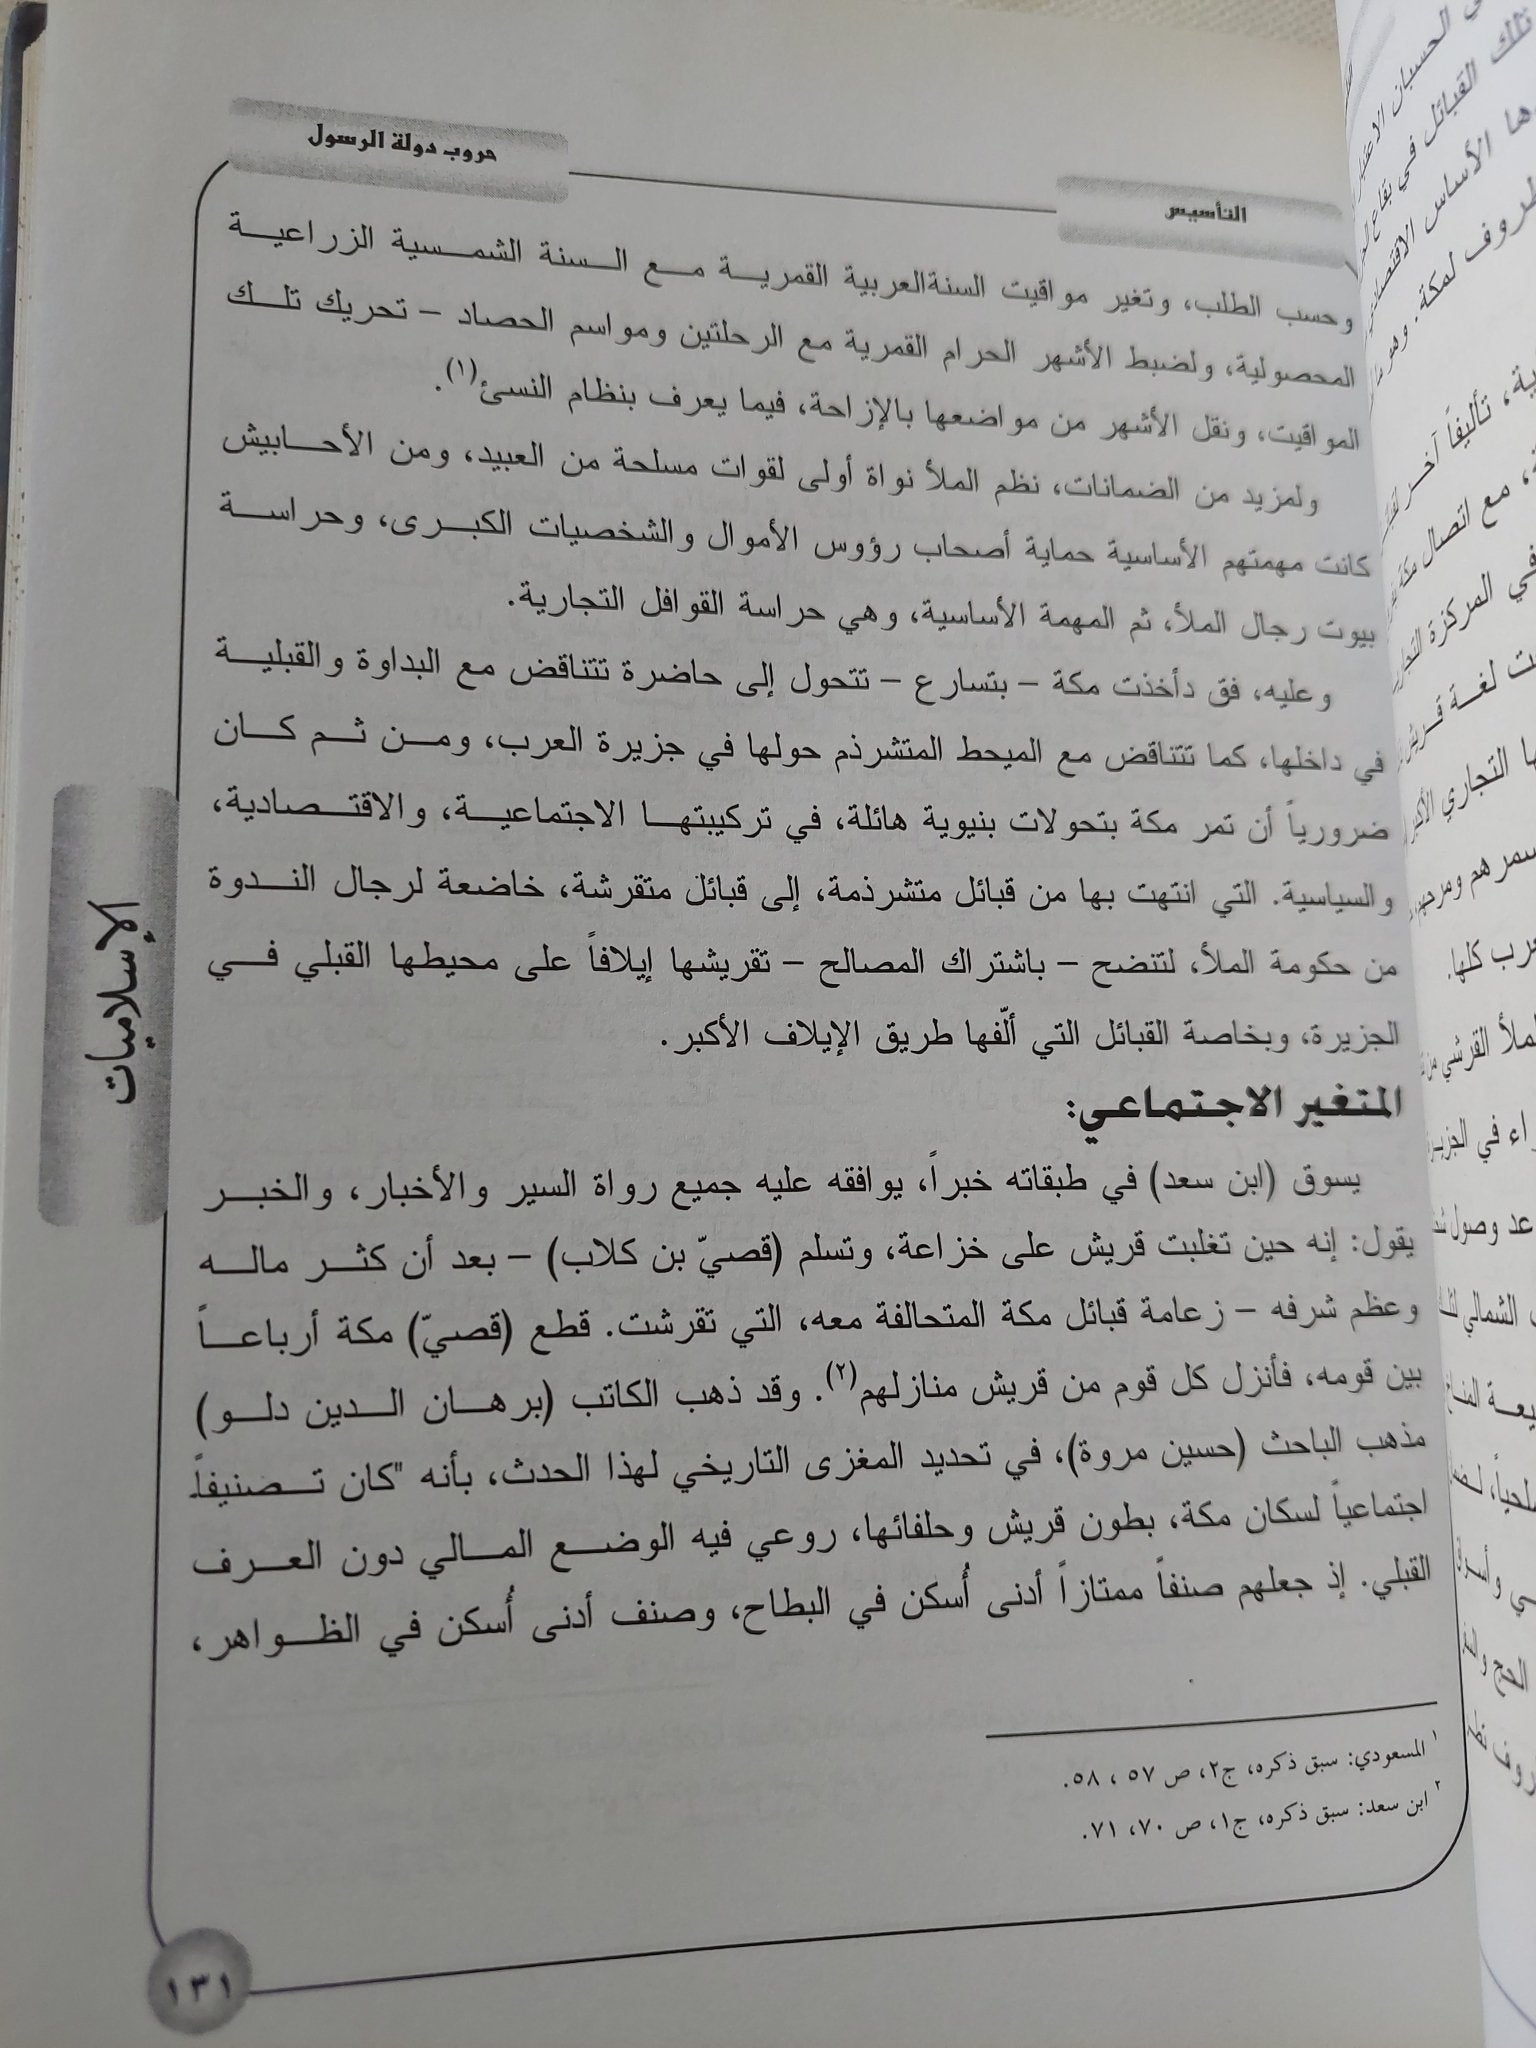 حروب دولة الرسول
التأسيس
وحسب الطلب، وتغير مواقيت السنةالعربية القمرية مع السنة الشمسية الزراعية
المحصولية، ولضبط الأشهر الحرام القمرية مع الرحلتين ومواسم الحصاد – تحريك تلك
المواقيت، ونقل الأشهر من مواضعها بالإزاحة، فيما يعرف بنظام النسئ(١).
ولمزيد من الضمانات، نظم الملأ نواة أولى لقوات مسلحة من العبيد، ومن الأحابيش
كانت مهمتهم الأساسية حماية أصحاب رؤوس الأموال والشخصيات الكبرى، وحراسة
بيوت رجال الملأ، ثم المهمة الأساسية، وهي حراسة القوافل التجارية.
وعليه، فق دأخذت مكة – بتسارع – تتحول إلى حاضرة تتناقض مع البداوة والقبلية
في داخلها، كما تتناقض مع الميحط المتشرذم حولها في جزيرة العرب، ومن ثم كان
ضرورياً أن تمر مكة بتحولات بنيوية هائلة، في تركيبتها الاجتماعية، والاقتصادية،
والسياسية. التي انتهت بها من قبائل متشرذمة، إلى قبائل متقرشة، خاضعة لرجال الندوة
من حكومة الملأ، لتنضح – باشتراك المصالح – تقريشها إيلافاً على محيطها القبلي في
الجزيرة، وبخاصة القبائل التي ألّفها طريق الإيلاف الأكبر.
المتغير الاجتماعي:
يسوق (ابن سعد) في طبقاته خبراً، يوافقه عليه جميع رواة السير والأخبار، والخبر
يقول: إنه حين تغلبت قريش على خزاعة، وتسلم (قصيّ بن كلاب) – بعد أن كثر ماله
وعظم شرفه – زعامة قبائل مكة المتحالفة معه، التي تقرشت. قطع (قصيّ) مكة أرباعاً
بين قومه، فأنزل كل قوم من قريش منازلهم(٢). وقد ذهب الكاتب (برهان الدين دلو)
مذهب الباحث (حسين مروة)، في تحديد المغزى التاريخي لهذا الحدث، بأنه "كان تصنيفاً
اجتماعياً لسكان مكة، بطون قريش وحلفائها، روعي فيه الوضع المالي دون العرف
القبلي. إذ جعلهم صنفاً ممتازاً أدنى أُسكن في البطاح، وصنف أدنى أُسكن في الظواهر،
١ المسعودي: سبق ذكره، ج٢، ص ٥٧ ، ٥٨.
٢ ابن سعد: سبق ذكره، ج١، ص ٧٠، ٧١.
١٣١
الإسلاميات